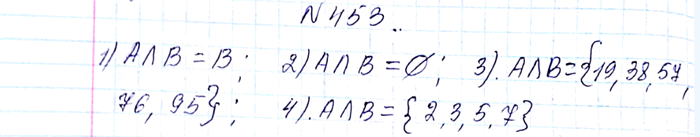 N 453..
1) A∩B = B; 2) A∩B = Ø; 3). A∩B = {19, 38, 57,
76, 95}; 4). A∩B = {2, 3, 5, 7}